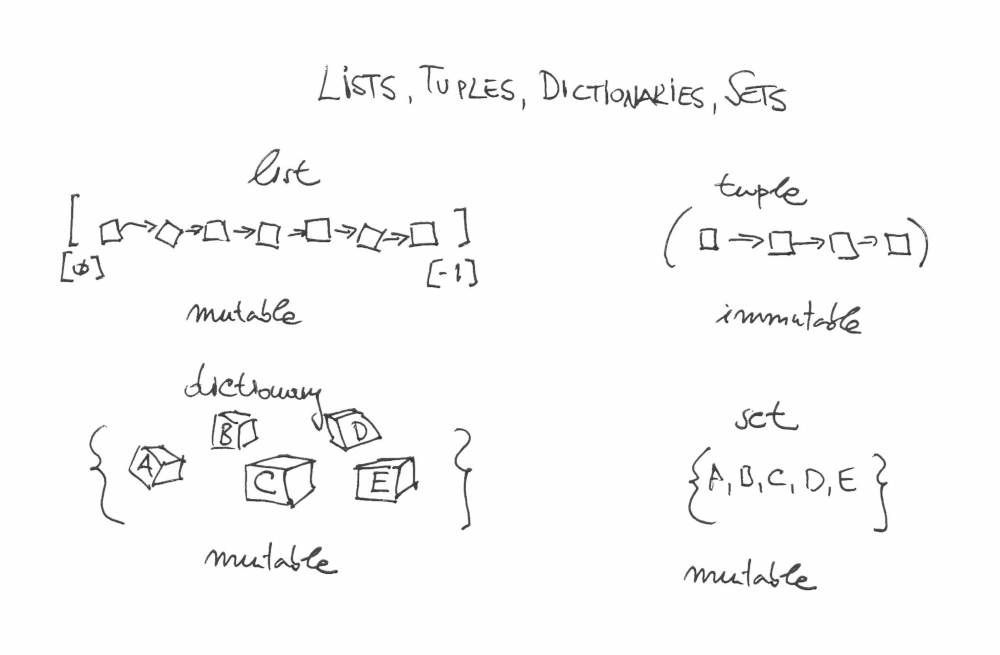 LISTS, TUPLES, DICTIONARIES, SETS
list
[ ]
[0] [-1]
mutable
tuple
( )
immutable
dictionary
{ A B C D E }
mutable
set
{A, B, C, D, E}
mutable